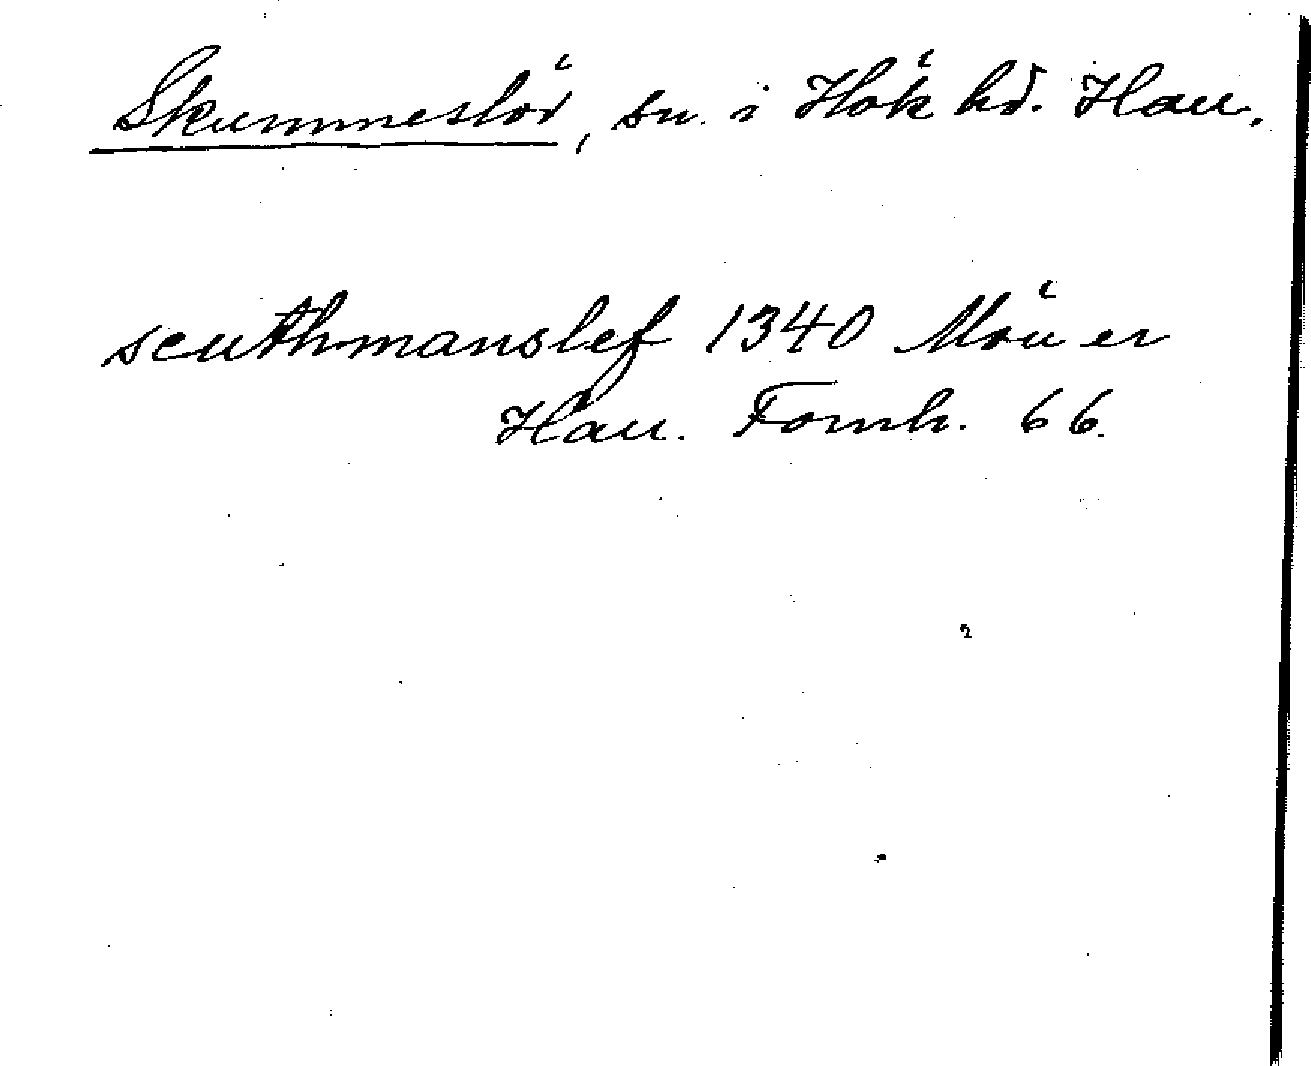 Skummeslöv, sn. i Hök hd. Hall.
scuthmanslef 1340 Möller
Hall. Fornh. 66.